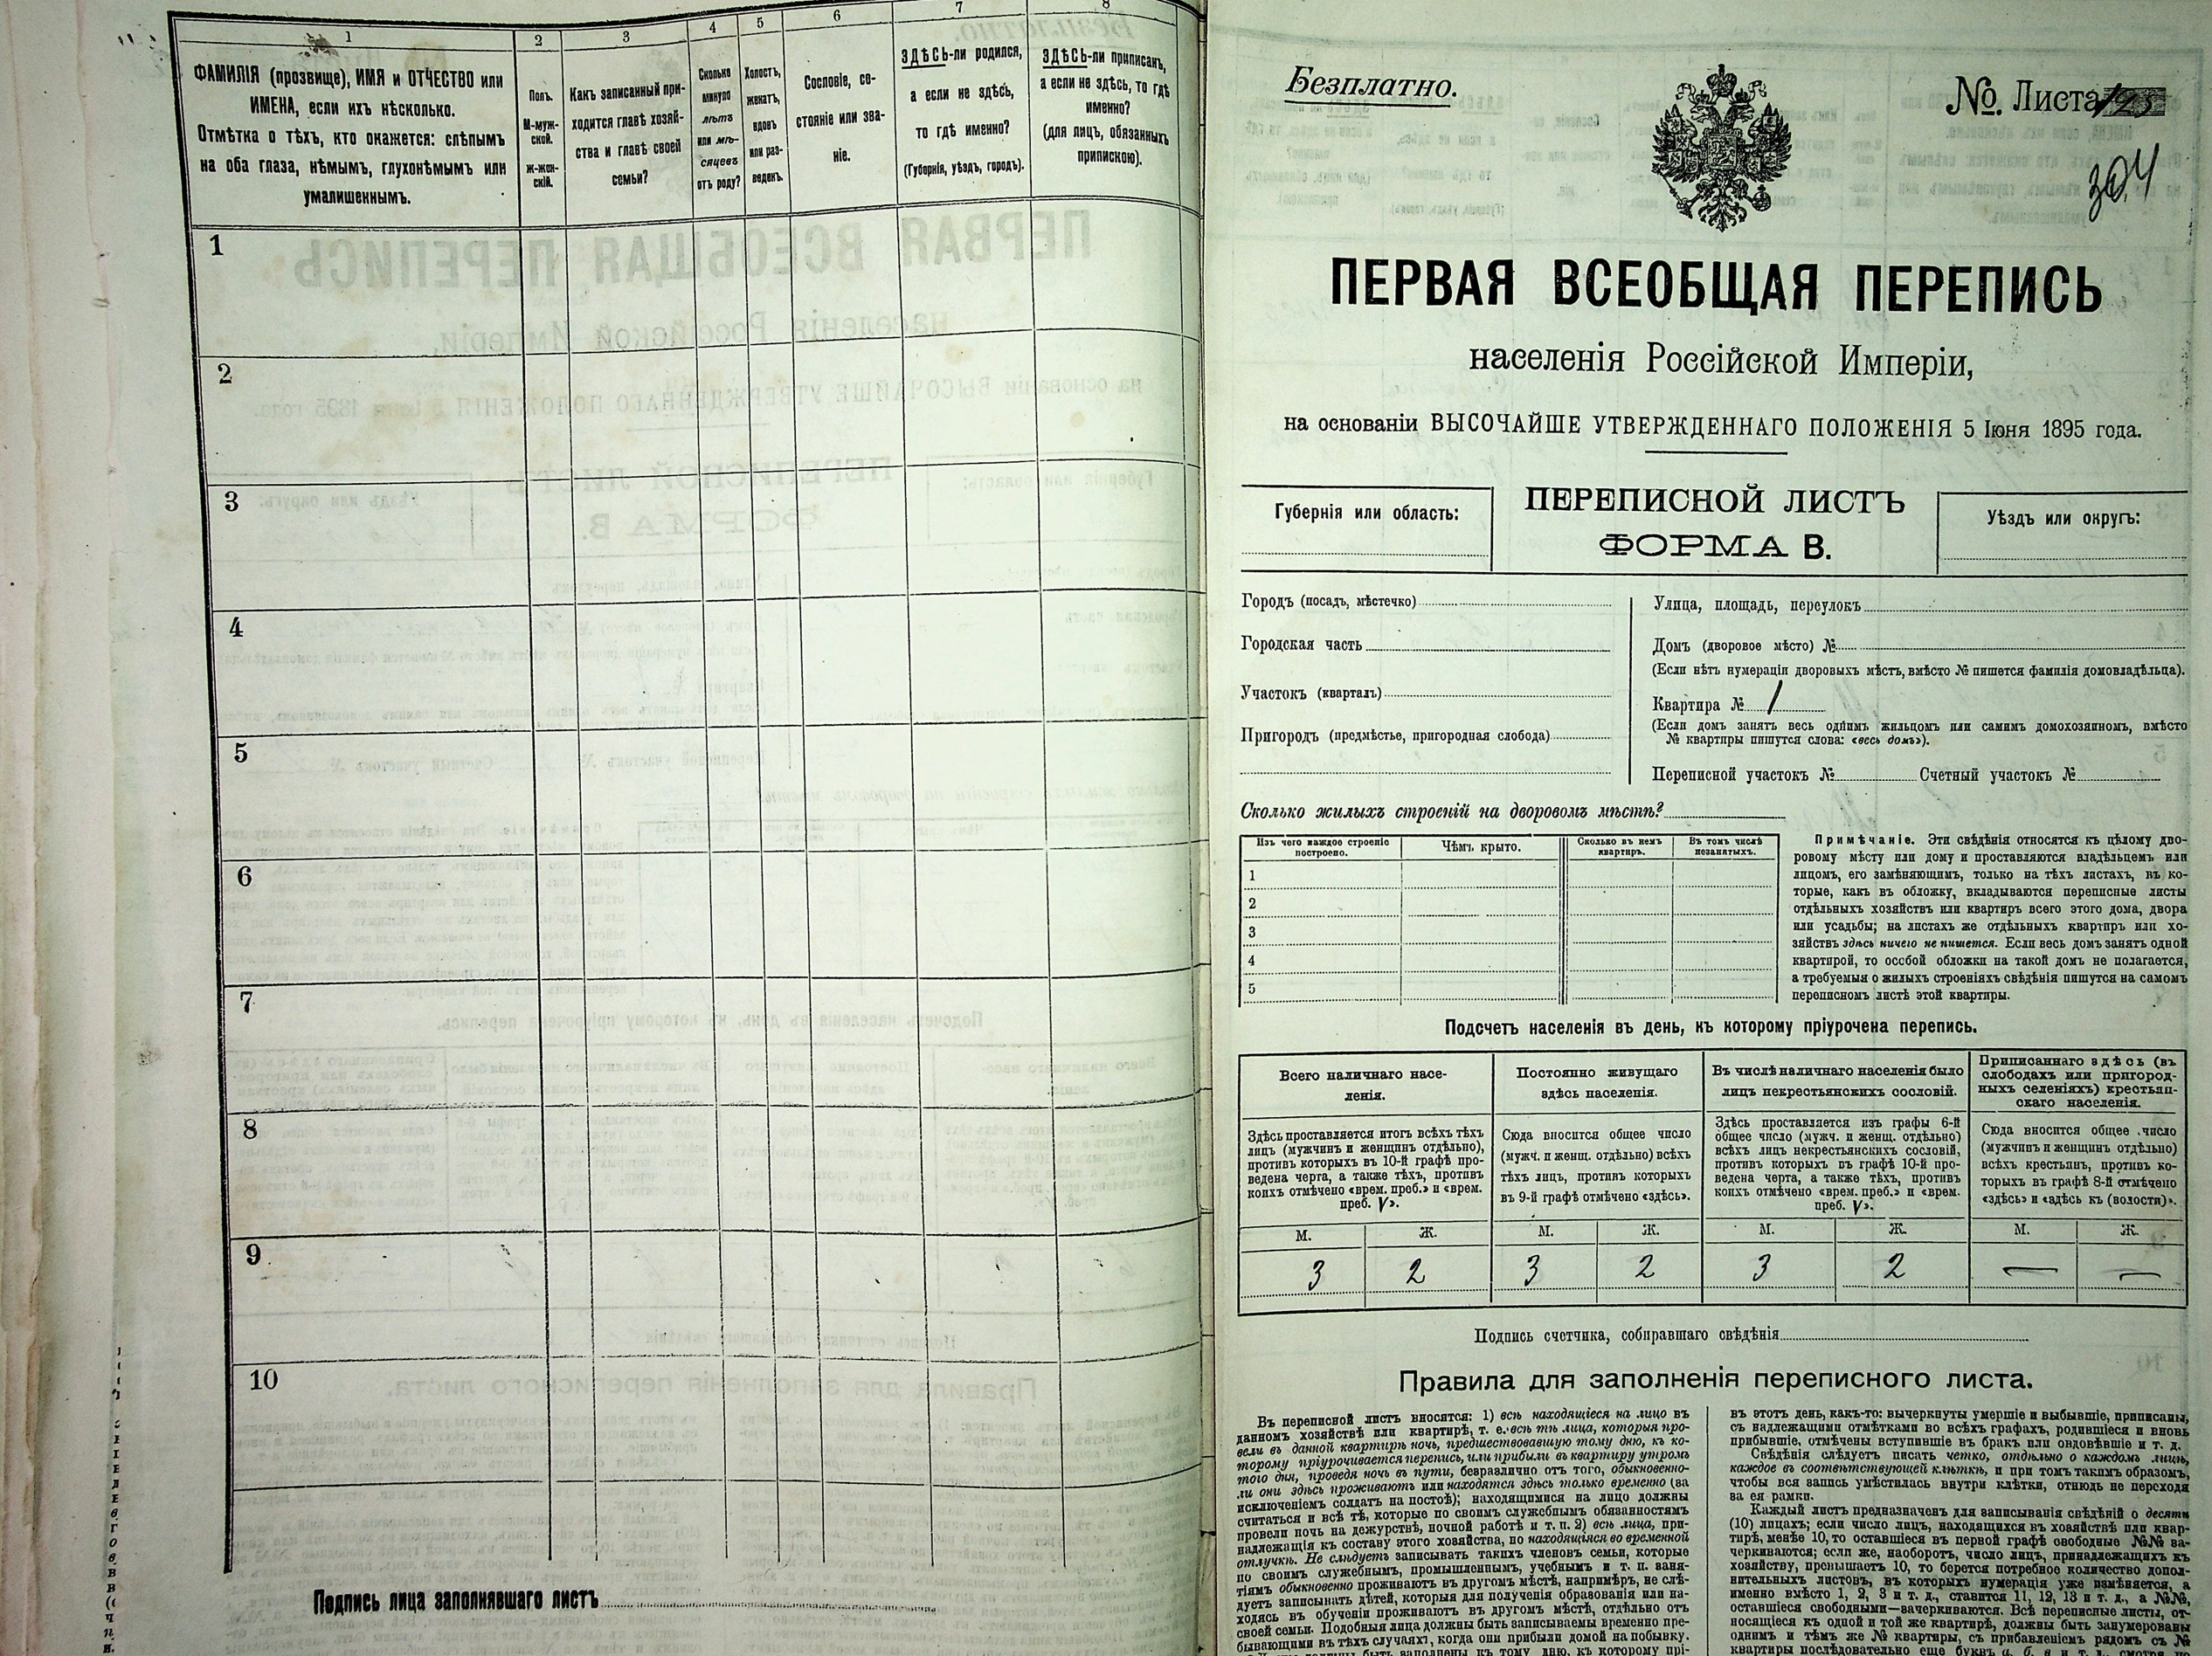 1
2
3
4
5
6
7
8
ФАМИЛІЯ (прозвище), ИМЯ и ОТЧЕСТВО или
ИМЕНА, если ихъ нѣсколько.
Отмѣтка о тѣхъ, кто окажется: слѣпымъ
на оба глаза, нѣмымъ, глухонѣмымъ или
умалишеннымъ.
Полъ.
М-муж-
ской.
Ж-жен-
скій.
Какъ записанный при-
ходится главѣ хозяй-
ства и главѣ своей
семьи?
Сколько
минуло
лѣтъ
или мѣ-
сяцевъ
отъ роду?
Холостъ,
женатъ,
вдовъ
или раз-
веденъ.
Сословіе, со-
стояніе или зва-
ніе.
ЗДѢСЬ-ли родился,
а если не здѣсь,
то гдѣ именно?
(Губернія, уѣздъ, городъ).
ЗДѢСЬ-ли приписанъ,
а если не здѣсь, то гдѣ
именно?
(для лицъ, обязанныхъ
припискою).
1
2
3
4
5
6
7
8
9
10
Подпись лица заполнявшаго листъ
Безплатно.
№ Листа
304
ПЕРВАЯ ВСЕОБЩАЯ ПЕРЕПИСЬ
населенія Россійской Имперіи,
на основаніи ВЫСОЧАЙШЕ УТВЕРЖДЕННАГО ПОЛОЖЕНІЯ 5 Іюня 1895 года.
Губернія или область:
ПЕРЕПИСНОЙ ЛИСТЪ
ФОРМА В.
Уѣздъ или округъ:
Городъ (посадъ, мѣстечко)
Городская часть
Участокъ (кварталъ)
Пригородъ (предмѣстье, пригородная слобода)
Улица, площадь, переулокъ
Домъ (дворовое мѣсто) №
(Если нѣтъ нумераціи дворовыхъ мѣстъ, вмѣсто № пишется фамилія домовладѣльца).
Квартира № 1
(Если домъ занятъ весь однимъ жильцомъ или самимъ домохозяиномъ, вмѣсто
№ квартиры пишутся слова: «весь домъ»).
Переписной участокъ № Счетный участокъ №
Сколько жилыхъ строеній на дворовомъ мѣстѣ?
Изъ чего каждое строеніе
построено.
Чѣмъ крыто.
Сколько въ немъ
квартиръ.
Въ томъ числѣ
незанятыхъ.
1
2
3
4
5
Примѣчаніе. Эти свѣдѣнія относятся къ цѣлому дво-
ровому мѣсту или дому и проставляются владѣльцемъ или
лицомъ, его замѣняющимъ, только на тѣхъ листахъ, въ ко-
торые, какъ въ обложку, вкладываются переписные листы
отдѣльныхъ хозяйствъ или квартиръ всего этого дома, двора
или усадьбы; на листахъ же отдѣльныхъ квартиръ или хо-
зяйствъ здѣсь ничего не пишется. Если весь домъ занятъ одной
квартирой, то особой обложки на такой домъ не полагается,
а требуемыя о жилыхъ строеніяхъ свѣдѣнія пишутся на самомъ
переписномъ листѣ этой квартиры.
Подсчетъ населенія въ день, къ которому пріурочена перепись.
Всего наличнаго насе-
ленія.
Постоянно живущаго
здѣсь населенія.
Въ числѣ наличнаго населенія было
лицъ некрестьянскихъ сословій.
Приписаннаго здѣсь (въ
слободахъ или пригород-
ныхъ селеніяхъ) крестьян-
скаго населенія.
Здѣсь проставляется итогъ всѣхъ тѣхъ
лицъ (мужчинъ и женщинъ отдѣльно),
противъ которыхъ въ 10-й графѣ про-
ведена черта, а также тѣхъ, противъ
коихъ отмѣчено «врем. преб.» и «врем.
преб. V».
Сюда вносится общее число
(мужч. и женщ. отдѣльно) всѣхъ
тѣхъ лицъ, противъ которыхъ
въ 9-й графѣ отмѣчено «здѣсь».
Здѣсь проставляется изъ графы 6-й
общее число (мужч. и женщ. отдѣльно)
всѣхъ лицъ некрестьянскихъ сословій,
противъ которыхъ въ графѣ 10-й про-
ведена черта, а также тѣхъ, противъ
коихъ отмѣчено «врем. преб.» и «врем.
преб. V».
Сюда вносится общее число
(мужчинъ и женщинъ отдѣльно)
всѣхъ крестьянъ, противъ ко-
торыхъ въ графѣ 8-й отмѣчено
«здѣсь» и «здѣсь къ (волости)».
М. Ж. М. Ж. М. Ж. М. Ж.
3 2 3 2 3 2 — —
Подпись счетчика, собиравшаго свѣдѣнія
Правила для заполненія переписного листа.
Въ переписной листъ вносятся: 1) всѣ находящіеся на лицо въ
данномъ хозяйствѣ или квартирѣ, т. е. всѣ тѣ лица, которыя про-
вели въ данной квартирѣ ночь, предшествовавшую тому дню, къ ко-
торому пріурочивается перепись, или прибыли въ квартиру утромъ
того дня, проведя ночь въ пути, безразлично отъ того, обыкновенно-
ли они здѣсь проживаютъ или находятся здѣсь только временно (за
исключеніемъ солдатъ на постоѣ); находящимися на лицо должны
считаться и всѣ тѣ, которые по своимъ служебнымъ обязанностямъ
провели ночь на дежурствѣ, ночной работѣ и т. п. 2) всѣ лица, при-
надлежащія къ составу этого хозяйства, но находящіяся во временной
отлучкѣ. Не слѣдуетъ записывать такихъ членовъ семьи, которые
по своимъ служебнымъ, промышленнымъ, учебнымъ и т. п. заня-
тіямъ обыкновенно проживаютъ въ другомъ мѣстѣ, напримѣръ, не слѣ-
дуетъ записывать дѣтей, которыя для полученія образованія или на-
ходясь въ обученіи проживаютъ въ другомъ мѣстѣ, отдѣльно отъ
своей семьи. Подобныя лица должны быть записываемы временно пре-
бывающими въ тѣхъ случаяхъ, когда они прибыли домой на побывку.
въ этотъ день, какъ-то: вычеркнуты умершіе и выбывшіе, приписаны,
съ надлежащими отмѣтками во всѣхъ графахъ, родившіеся и вновь
прибывшіе, отмѣчены вступившіе въ бракъ или овдовѣвшіе и т. д.
Свѣдѣнія слѣдуетъ писать четко, отдѣльно о каждомъ лицѣ,
каждое въ соотвѣтствующей клѣткѣ, и при томъ такимъ образомъ,
чтобы вся запись умѣстилась внутри клѣтки, отнюдь не переходя
за ея рамки.
Каждый листъ предназначенъ для записыванія свѣдѣній о десяти
(10) лицахъ; если число лицъ, находящихся въ хозяйствѣ или квар-
тирѣ, менѣе 10, то оставшіеся въ первой графѣ свободные №№ за-
черкиваются; если же, наоборотъ, число лицъ, принадлежащихъ къ
хозяйству, превышаетъ 10, то берется потребное количество допол-
нительныхъ листовъ, въ которыхъ нумерація уже измѣняется, а
именно вмѣсто 1, 2, 3 и т. д., ставится 11, 12, 13 и т. д., а №№,
оставшіеся свободными—зачеркиваются. Всѣ переписные листы, от-
носящіеся къ одной и той же квартирѣ, должны быть занумерованы
однимъ и тѣмъ же № квартиры, съ прибавленіемъ рядомъ съ №